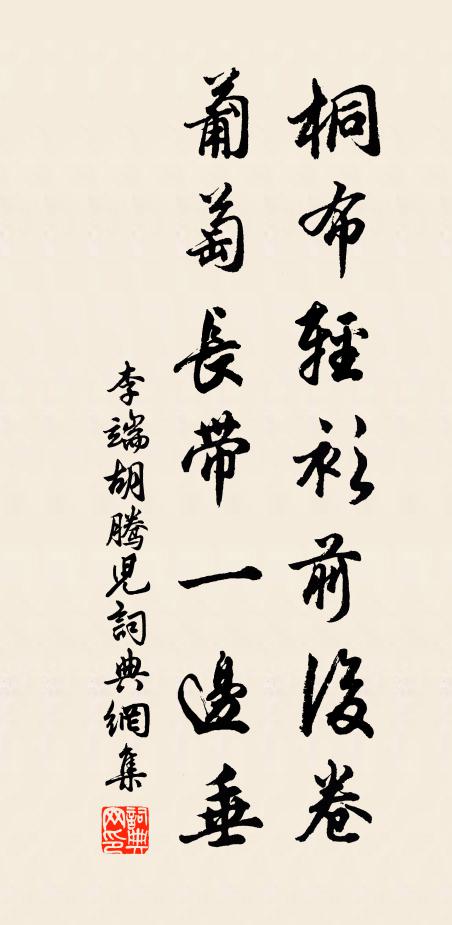 桐布輕衫前後卷
葡萄長帶一邊垂
李端胡騰兒詞典網集
詞典网印